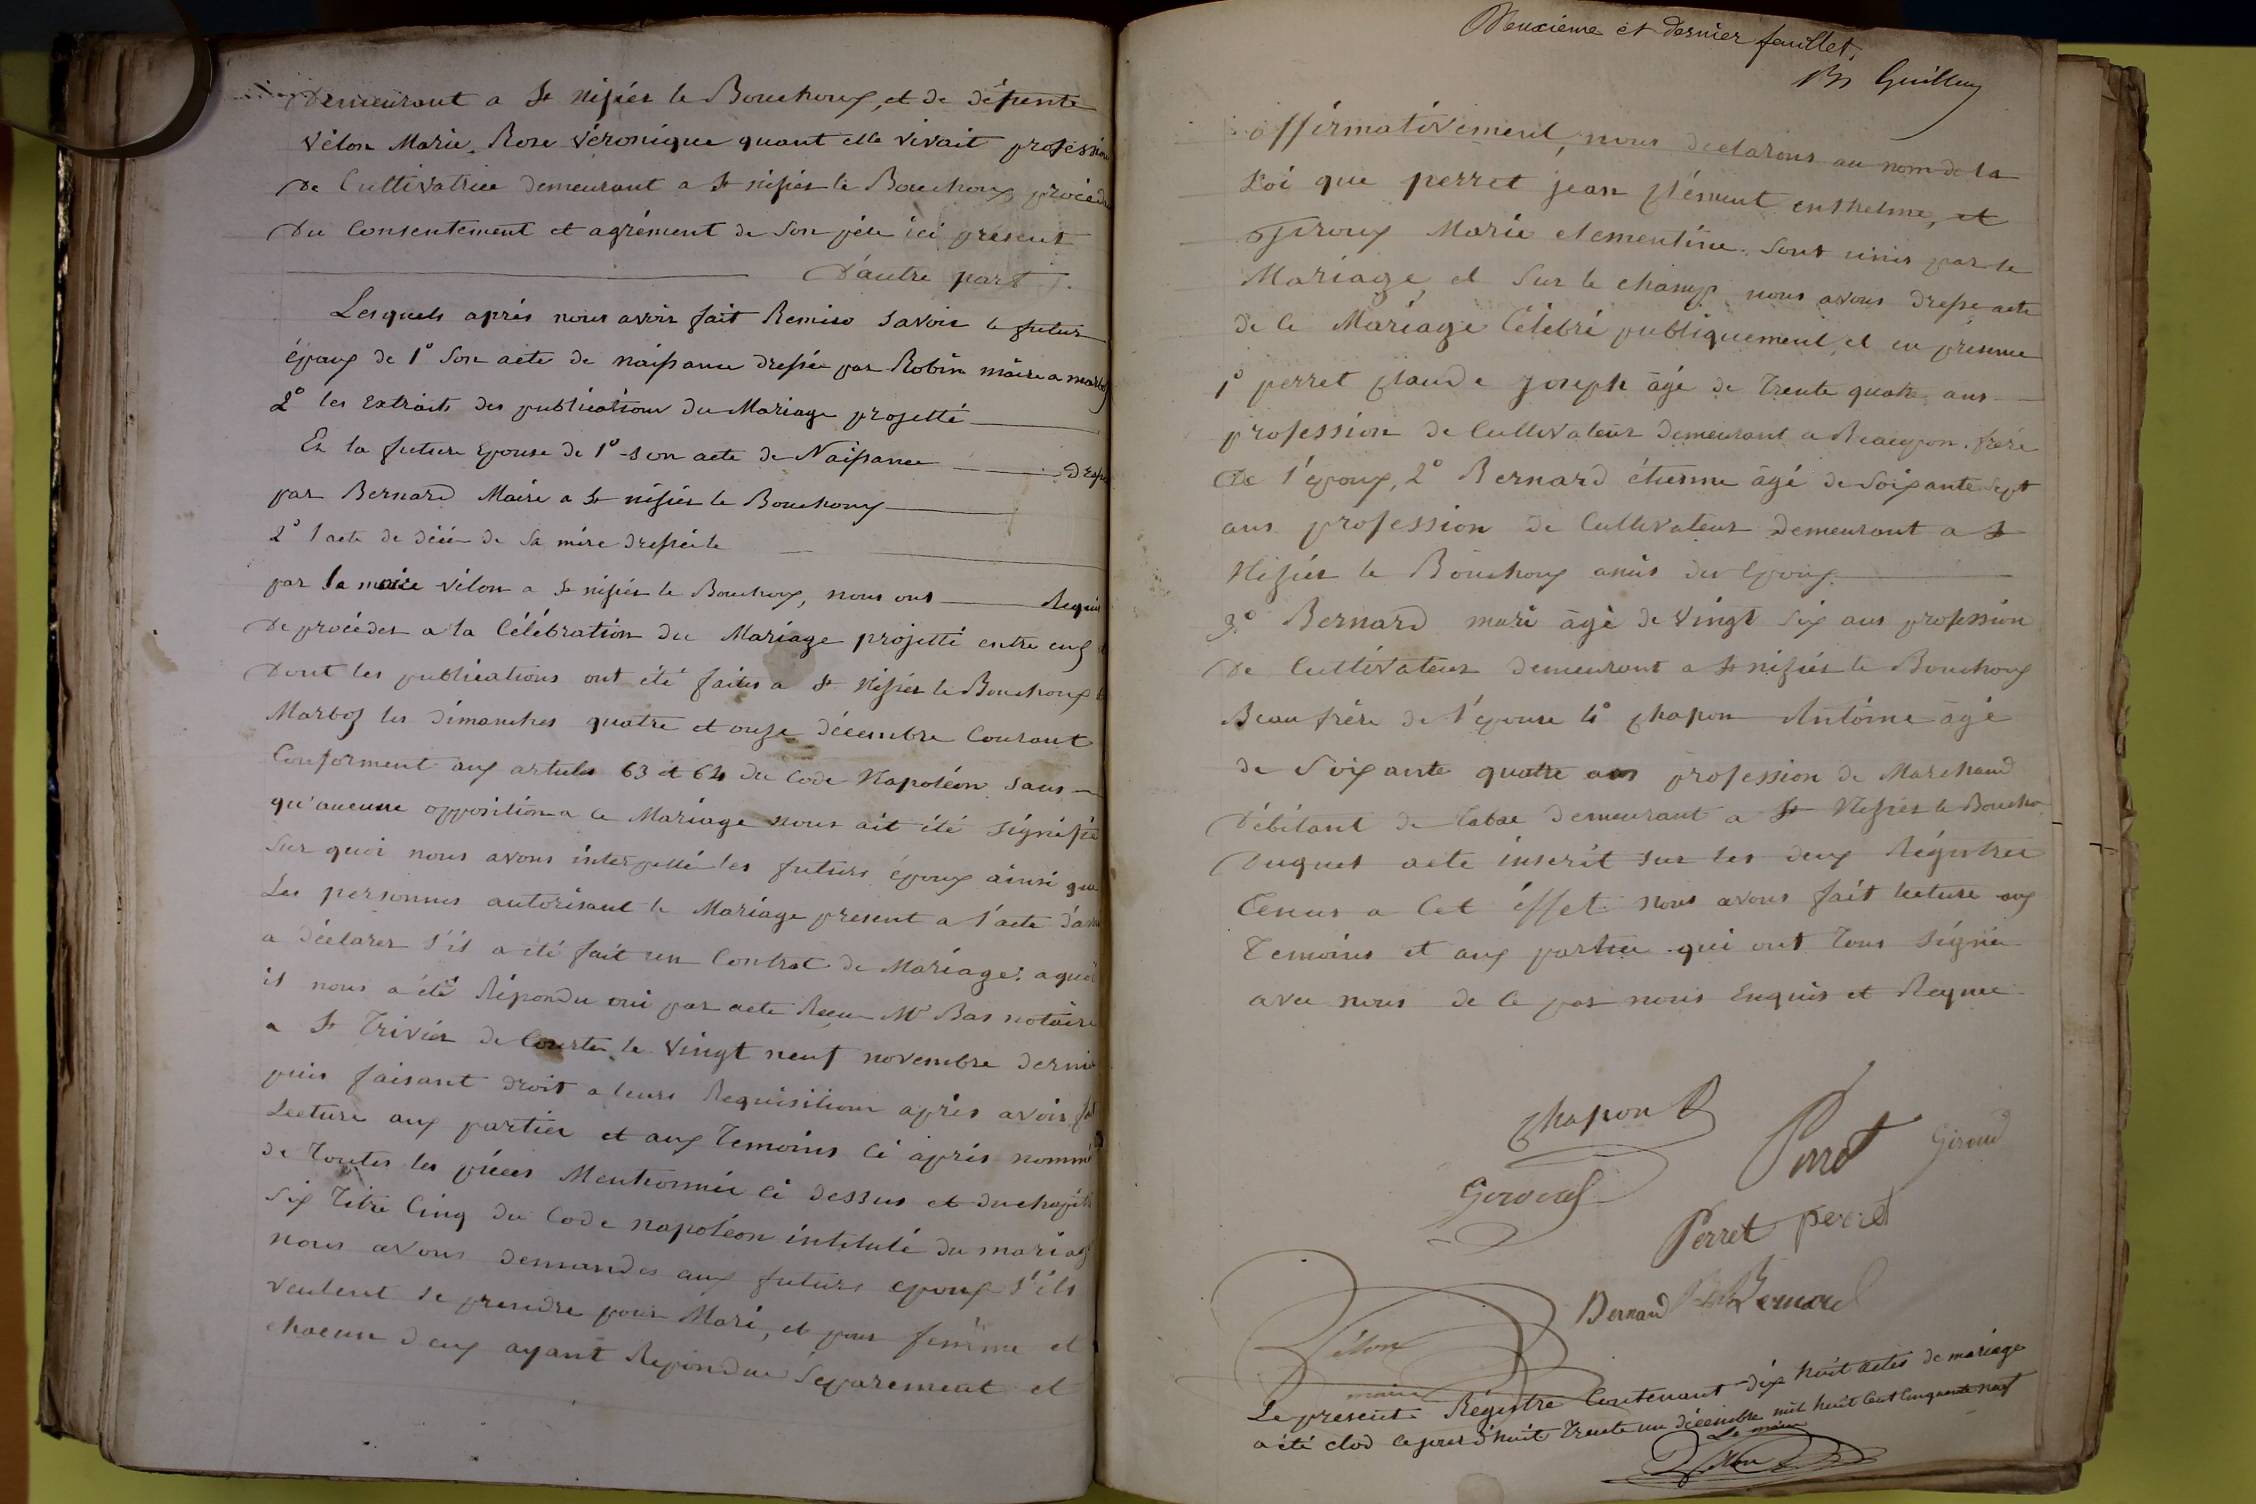 Demeurant a St nisier le Bouchoux, et de défunte
Vélon Marie Rose Véronique quant elle vivait profession
De Cultivatrice demeurant a St nisier le Bouchoux procéda
Du Consentement et agrément de son père ici présent
D'autre part.
Lesquels après nous avoir fait Remise Savoir le futur
époux de 1° Son acte de naissance dressée par Robin maire a marboz
2° les Extraits des publications du Mariage projetté
Et la future Epouse de 1° son acte de Naissance
par Bernard Maire a St nisier le Bouchoux
2° l'acte de décé de sa mère dressée le
par le maire vélon a St nisier le Bouchoux, nous ont Requis
De procéder a la Célébration du Mariage projetté entre eux
Dont les publications ont été faites a St Nisier le Bouchoux
Marboz les dimanches quatre et onze décembre Courant
Conforment aux articles 63 et 64 du Code Napoléon sans
qu'aucune opposition a ce Mariage nous ait été signifié
Sur quoi nous avons interpellé les futurs époux ainsi que
Les personnes autorisant le Mariage present a l'acte d'avoir
a déclarer s'il a été fait un Contrat de Mariage; a quoi
il nous a été Répondu oui par acte Reçu Me Bas notaire
a St Trivier de Courtes le vingt neuf novembre dernier
puis faisant droit a leurs Requisitions après avoir fait
Lecture aux parties et aux Temoins ci après nommé
de toutes les pièces Mentionnée ci dessus et du chapitre
Six Titre Cinq du Code napoléon intitulé du mariage
nous avons demandes aux futurs epoux s'ils
veulent se prendre pour Mari, et pour femme et
chacun deux ayant Repondue séparement et
Deuxieme et dernier feuillet,
Guilluy
affirmativement, nous declarons au nom de la
Loi que perret jean Clément enthelme, et
Giroux Marie clementine Sont unis par le
Mariage, et Sur le champ nous avons dressé acte
de ce Mariage Célébré publiquement, et en présence
1° perret Claude Joseph âgé de Trente quatre ans
profession de Cultivateur demeurant a Beaupon. frère
De l'époux, 2° Bernard étienne âgé de Soixante sept
ans profession de Cultivateur demeurant a St
Nisier le Bouchoux amis des Epoux.
3° Bernard mari âgé de vingt Six ans profession
De Cultivateur demeurant a St nisier le Bouchoux
Beau frère de l'épouse 4° Chapon Antoine âgé
de Soixante quatre ans profession de Marchand
Débitant de Tabac demeurant a St Nisier le Boucho
Duquel acte inscrit sur les deux Régistres
Tenus a Cet éffet nous avons fait lecture aux
Temoins et aux parties qui ont Tous signée
avec nous de ce par nous Enquis et Requis
Chapon
Perret Giroud
Giroud
Perret perret
Bernard Bernard
Vélon
maire
Le present Régistre Contenant dix huit actes de mariage
a été clos cejourd'huit Trente un décembre mil huit Cent Cinquante neuf
Le maire
Vélon